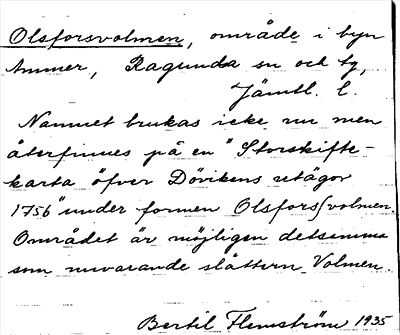 Olsforsvolmen, område i byn
Ammer, Ragunda sn och tg,
Jämtl. l.
Namnet brukas icke nu men
återfinnes på en "Storskifte-
karta öfver Dövikens utägor
1756" under formen Olsfors/volmen.
Området är möjligen detsamma
som nuvarande slåttern Volmen.
Bertil Flemström 1935